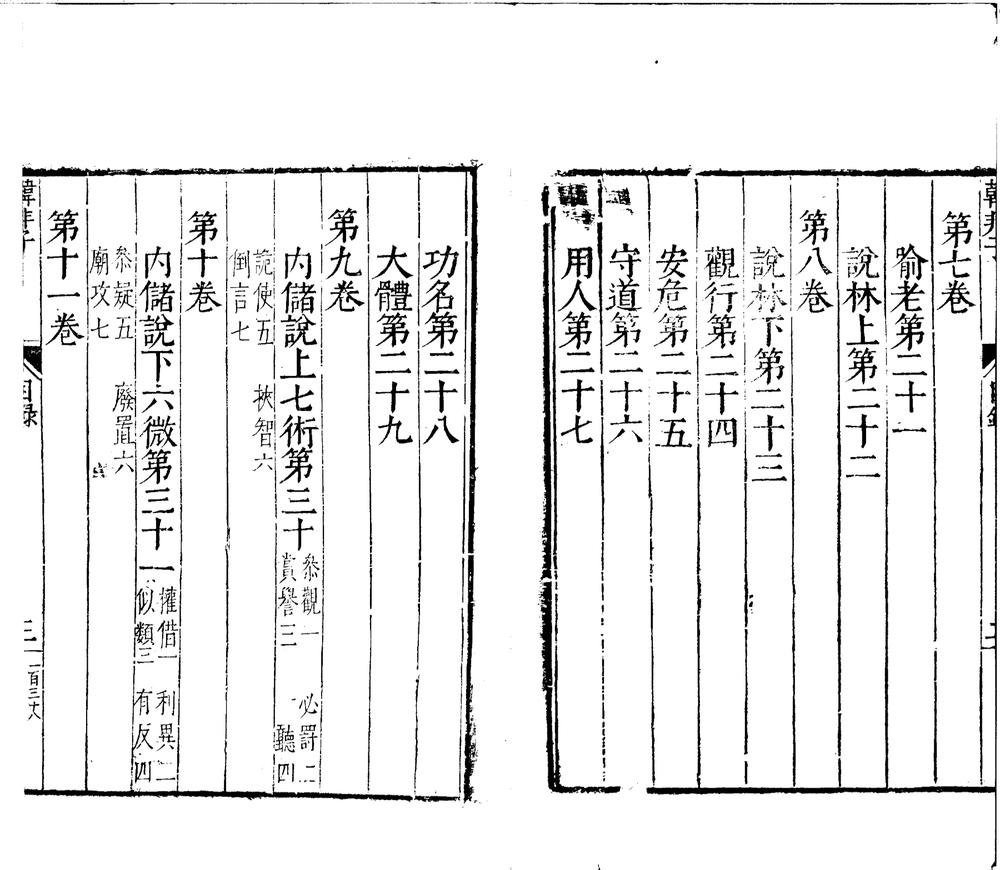 第七卷
喻老第二十一
說林上第二十二
第八卷
說林下第二十三
觀行第二十四
安危第二十五
守道第二十六
用人第二十七
功名第二十八
大體第二十九
第九卷
內儲說上七術第三十 叅觀一 必罰二
賞譽三 一聽四
詭使五 挾智六
倒言七
第十卷
內儲說下六微第三十一 權借一 利異二
似類三 有反四
叅疑五 廢置六
廟攻七
第十一卷
目錄